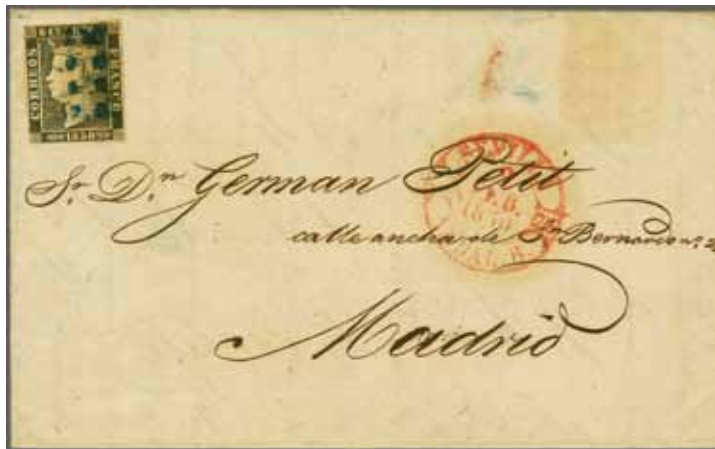 CORREOS
FRANCO
1850
Sr. Dn. German Petit
calle ancha de Sn. Bernardo nº.
Madrid